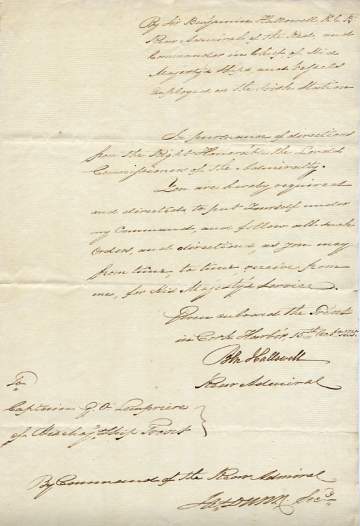 By Sir Benjamin Hallowell K.C.B.
Rear Admiral of the Red, and
Commander in Chief of His
Majesty's Ships and Vessels
employed on the Irish Station
In pursuance of directions
from the Right Honorable the Lords
Commissioners of the Admiralty.
You are hereby required
and directed to put Yourself under
my Command, and follow all such
Orders, and directions, as you may
from time, to time receive from
me, for His Majesty's Service.
Given on board the
in Cork Harbor, 15th
Hallowell
Rear Admiral
To
Captain G. O. Lempriere
of His Maj. Ship
By Command of the Rear Admiral
Secy